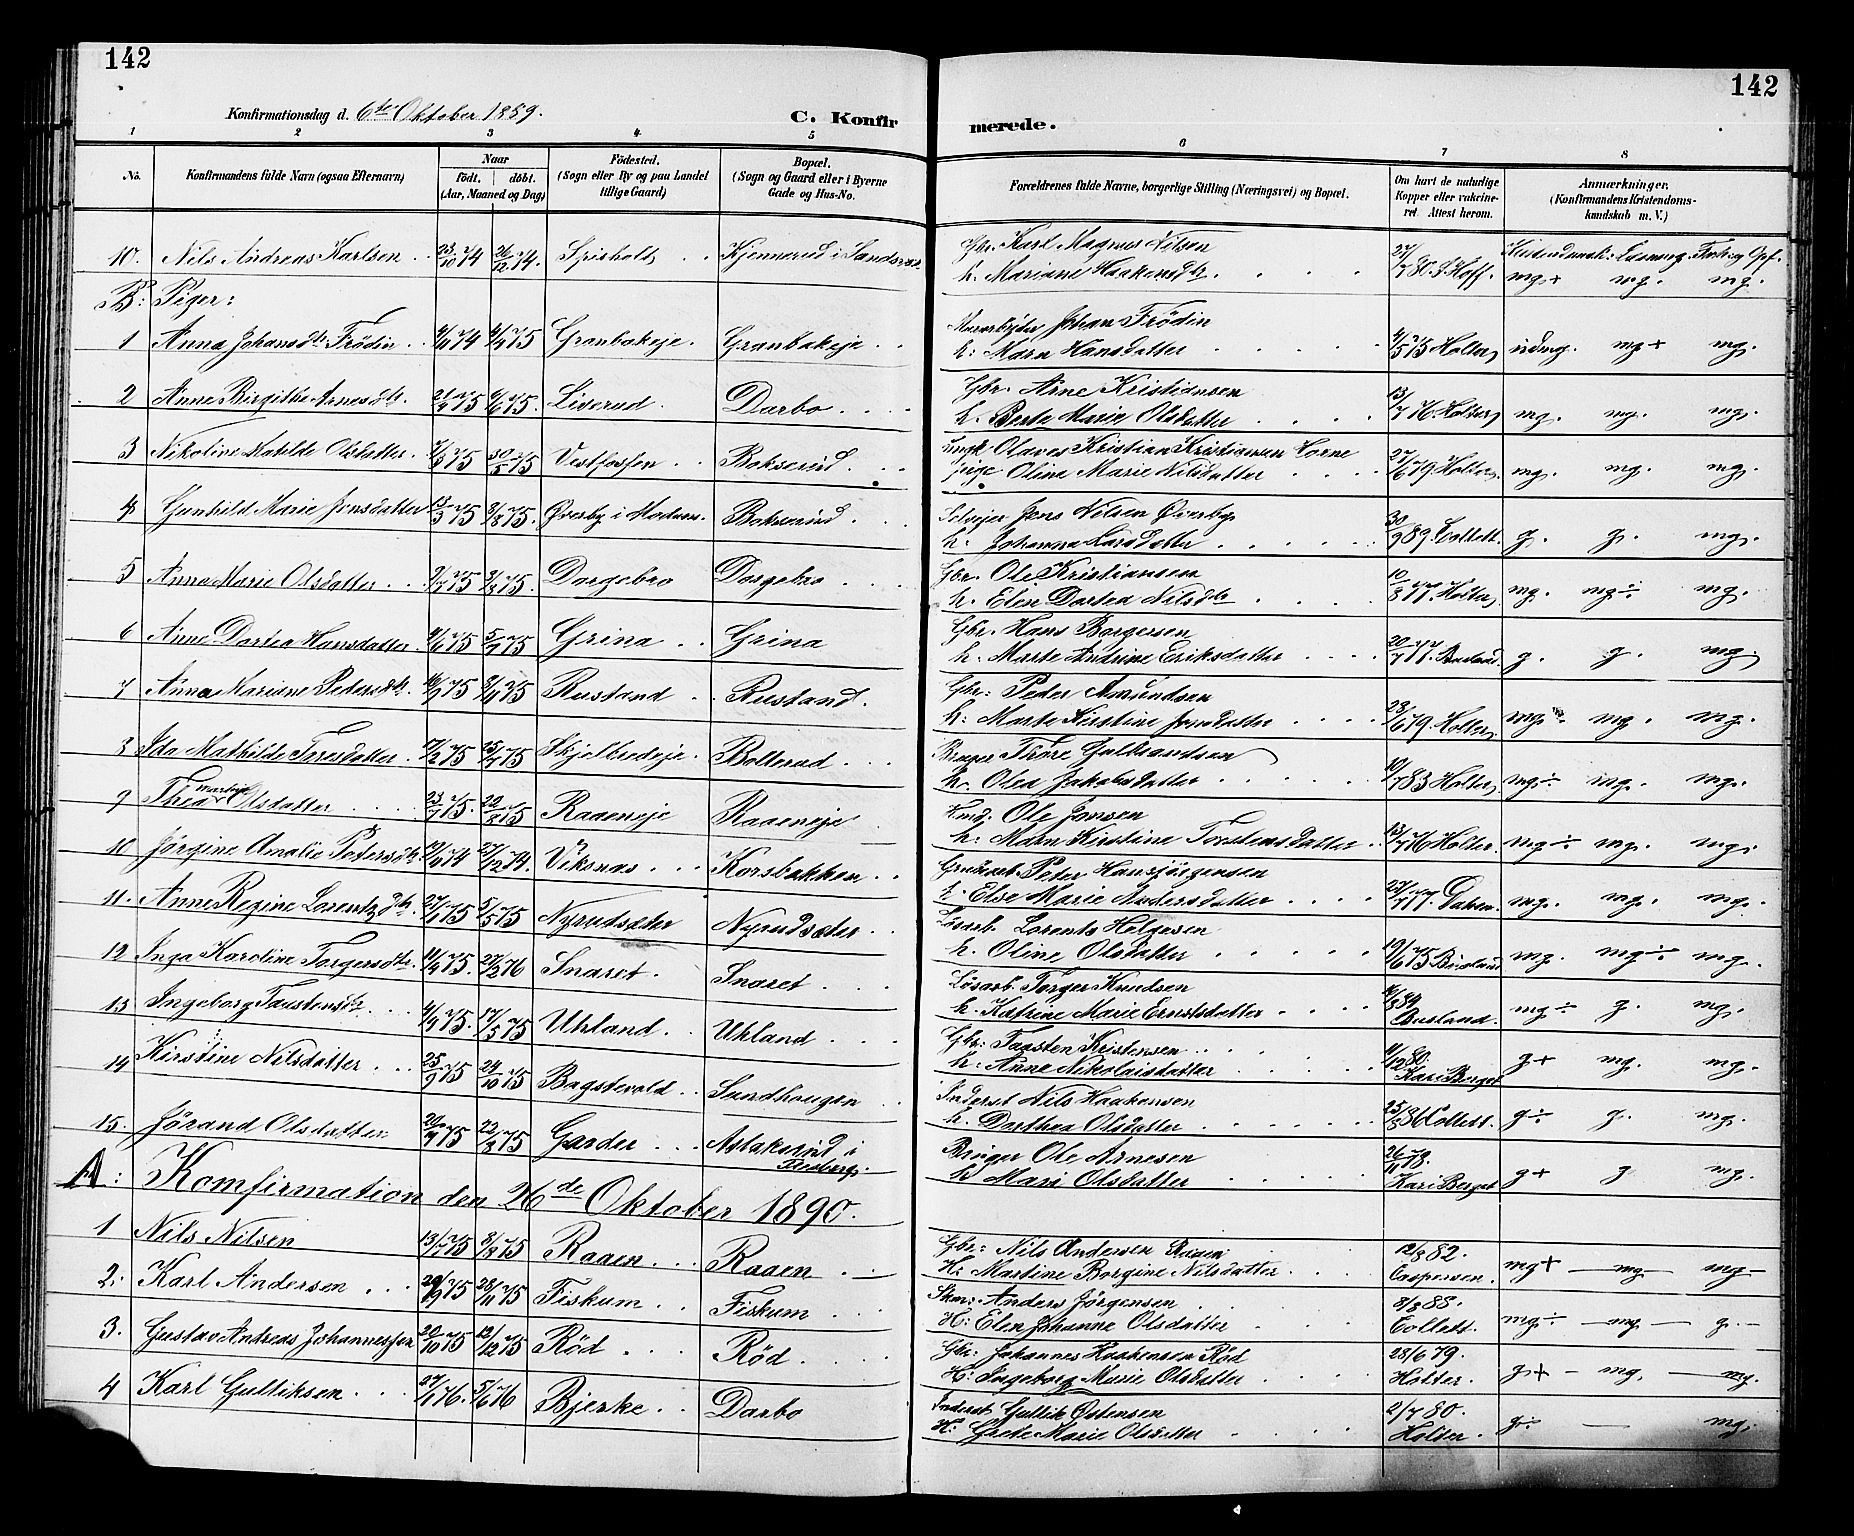 142
142
Konfirmationsdag d. 6te Oktober 1889.
C. Konfir
merede.
1 2 3 4 5 6 7 8
No.
Konfirmandens fulde Navn (ogsaa Efternavn)
Naar
født. døbt.
(Aar, Maaned og Dag)
Fødested.
(Sogn eller By og paa Landet
tillige Gaard)
Bopæl.
(Sogn og Gaard eller i Byerne
Gade og Hus-No.
Forældrenes fulde Navne, borgerlige Stilling (Næringsvei) og Bopæl.
Om havt de naturlige
Kopper eller vakcine-
ret Attest herom.
Anmærkninger.
(Konfirmandens Kristendoms-
kundskab m. V.)
10. Nils Andreas Karlsen 23/10 74 26/12 74. Spisholt Kjennerud i Sandsvær
Gbr. Karl Magnus Nilsen
h. Mariane Haakensdtr. 80. S. Hoff. mg+ mg. mg.
B: Piger:
1 Anna Johansdtr Frödin 74 75 Granbakeje. Granbakeje
Johan Frödin
h: Maren Hansdatter 4/5 75 Holter udmg. mg+ mg.
2 Anne Birgitte Arnesdtr. 75 75. Liverud. Darbo
Gbr. Arne Kristiansen
h. Berte Marie Olsdatter 13/7 76. Holter mg. mg. mg.
3 Nikoline Matilde Olsdatter 75 30/5 75 Vestfossen Bakserud.
Ungk. Olaves Kristian Kristiansen Horne
Pige Oline Marie Nilsdatter 27/6 79 Holter mg. mg. mg.
4 Gunhild Marie Jensdatter 13/3 75 8/8 75. Øverby i Modum. Bakserud
Selvejer Jens Nilsen Øverby
h: Johanna Larsdatter 30/9 89. Collett. g. g. mg.
5 Anna Marie Olsdatter 75 75. Dorgebro Dorgebro
Gbr. Ole Kristiansen
h. Elen Dortea Nilsdtr 10/8 77. Holter mg. mg÷ mg.
6 Anne Dortea Hansdatter. 75 5/7 75 Grina Grina
Gbr. Hans Borgersen
h. Marte Andrine Eriksdatter 20/7 77. Busland. g. g. mg.
7 Anna Mariane Pedersdtr. 75 75 Rustand Rustand.
Gbr: Peder Amundsen
h: Marte Kirstine Jensdatter 23/6 79. Holter mg÷ mg. mg.
8 Ida Mathilde Toresdatter 17/2 75 25/7 75 Skjelbredeje. Bollerud
Bruger Tore Gulbrandsen
h. Olea Jakobsdatter 10/7 83 Holter mg÷ mg. mg.
9 Thea Martine Olsdatter 23/7 75. 22/8 75 Raaeneje Raaeneje
Hmd. Ole Jonsen
h. Maren Kirstine Torstensdatter 13/7 76 Holter. mg÷ mg. mg.
10 Jörgine Amalie Petersdtr. 74 27/12 74. Viksnæs Korsbakken
Peter Hansjørgensen
h. Else Marie Andersdatter 27/7 77. mg. mg. mg.
11. Anne Regine Lorentzdtr 27/1 75 5/5 75 Nyrudsæter Nyrudsæter
Løsarb. Lorents Helgesen
h. Oline Olsdatter 19/6 75 Busland mg. mg÷ mg.
12 Inga Karoline Torgersdtr. 75. 27/2 76 Snaret. Snaret
Løsarb. Torger Knudsen
h. Katrine Marie Ernstsdatter 89 Busland. mg÷ g. mg.
13 Ingeborg Taastensdtr. 4/4 75. 17/5 75 Uhland. Uhland
Gbr: Taasten Kristensen
h. Anne Nikolaisdatter 80. Kari Berget g+ mg. mg.
14 Kirstine Nilsdatter 25/9 75 24/10 75 Bagstevold Sandhaugen
Inderst Nils Haakensen
h. Dorthea Olsdatter 25/8 86 Collett. g÷ g. mg.
15. Jörand Olsdatter 75 22/8 75 Garder Aslaksrud i
Bruger Ole Arnesen
h Mari Olsdatter 26/11 78. Kari Berget g+ g mg.
A: Komfirmation den 26de Oktober 1890.
1 Nils Nilsen 13/7 75 8/8 75 Raaen Raaen
Gbr: Nils Andersen Raaen
H: Martine Borgine Nilsdatter 12/8 82. Caspersen. mg+ — mg — mg —
2. Karl Andersen 29/9 75 28/11 75 Fiskum Fiskum
Skm: Anders Jörgensen
H: Elen Johanne Olsdatter 8/8 88. Collett. mg÷ — mg — g. —
3. Gustav Andreas Johannessen 20/10 75 12/12 75 Röd Röd
Gbr: Johannes Haakensen Röd
H: Ingeborg Marie Olsdatter 28/6 79. Holter. g+ — mg. — mg.
4 Karl Gulliksen 27/1 76. 5/6 76 Bjerke Darbo
Inderst Gullik Ostensen
H: Grete Marie Olsdatter 2/7 80. Holter. g÷ — mg.